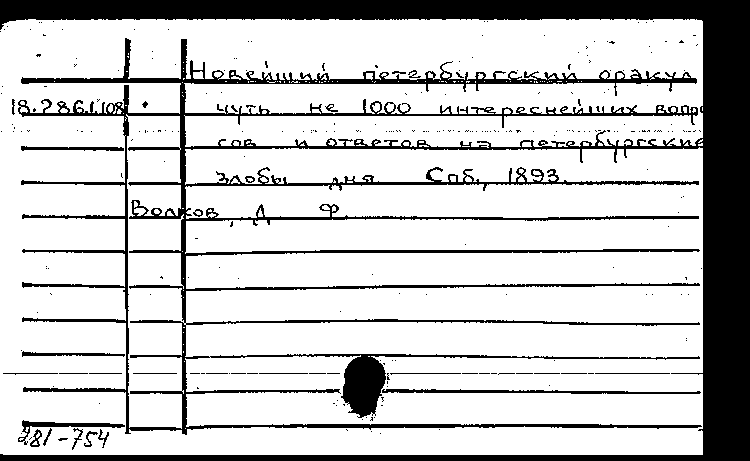 Новейший петербургский оракул
18.286.1.108 • чуть не 1000 интереснейших вопро
сов и ответов на петербургские
злобы дня Спб., 1893.
Волков, Д. Ф.
281-754